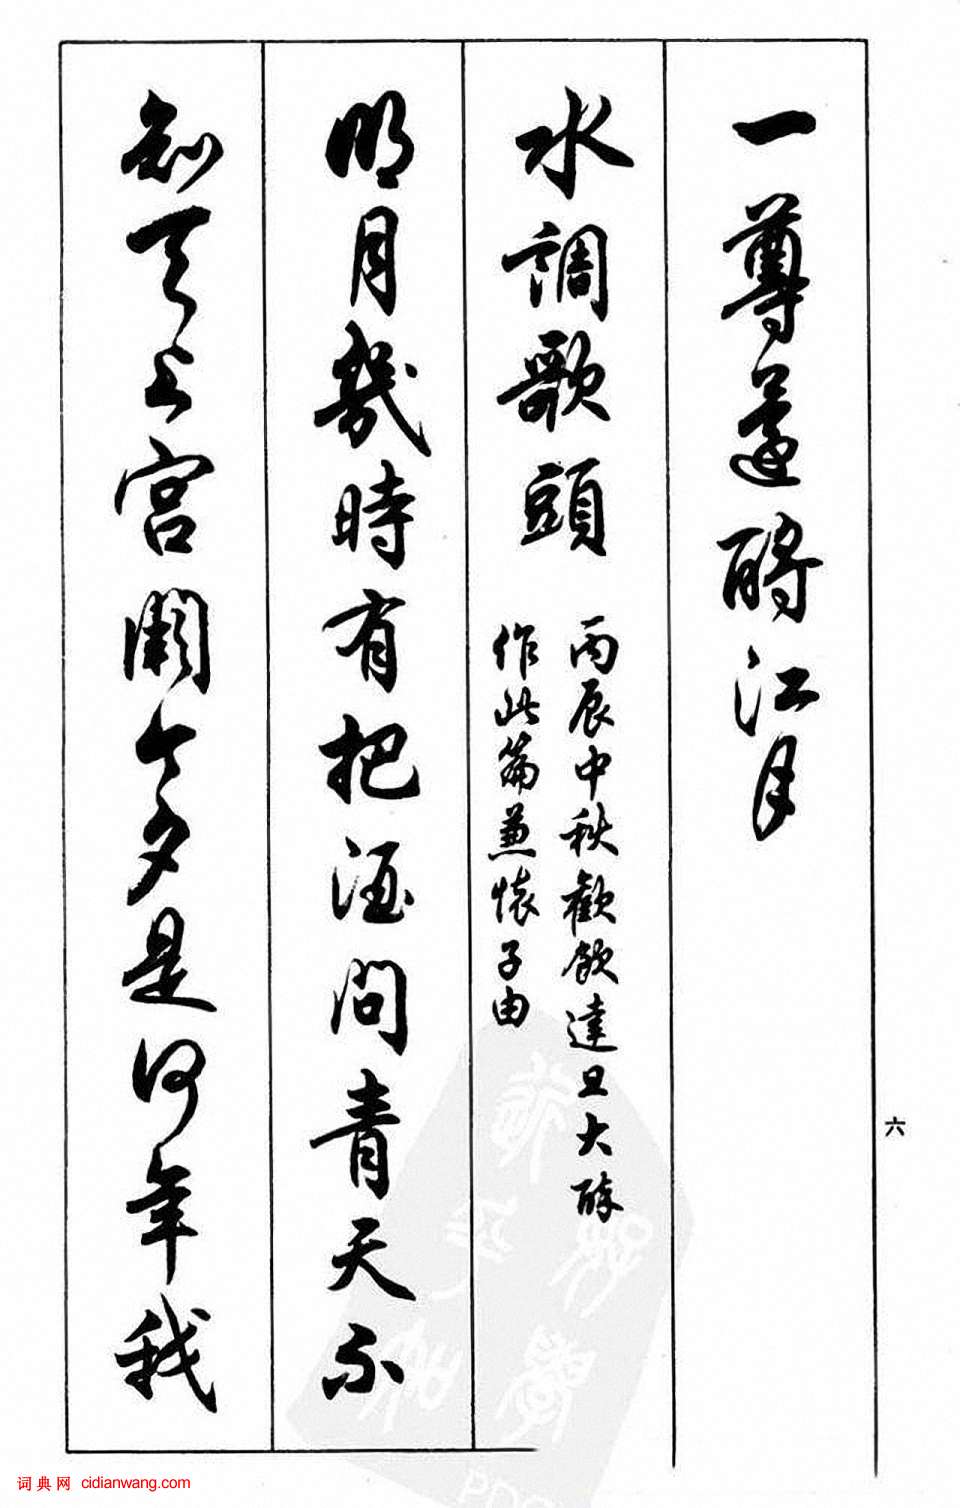 一尊還酹江月
水調歌頭
丙辰中秋歡飲達旦大醉
作此篇兼懷子由
明月幾時有把酒問青天不
知天上宮闕今夕是何年我
六
词典网 cidianwang.com